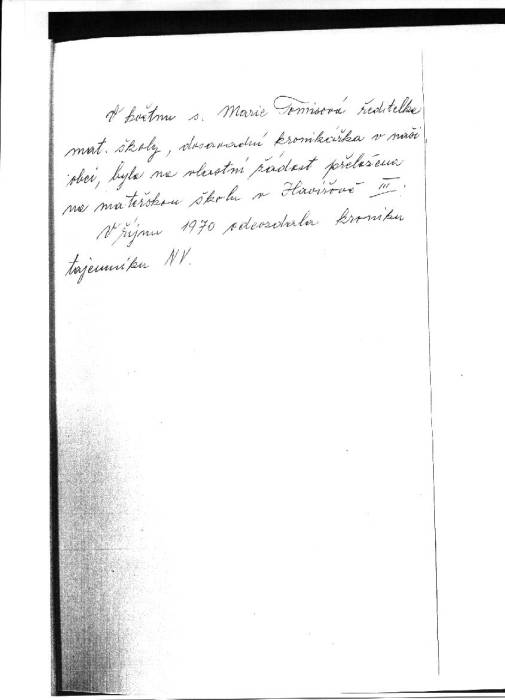 V květnu s. Marie Tomisová ředitelka
mat. školy, dosavadní kronikářka v naší
obci, byla na vlastní žádost přeložena
na mateřskou školu v Havířově III.
V říjnu 1970 odevzdala kroniku
tajemníku NV.